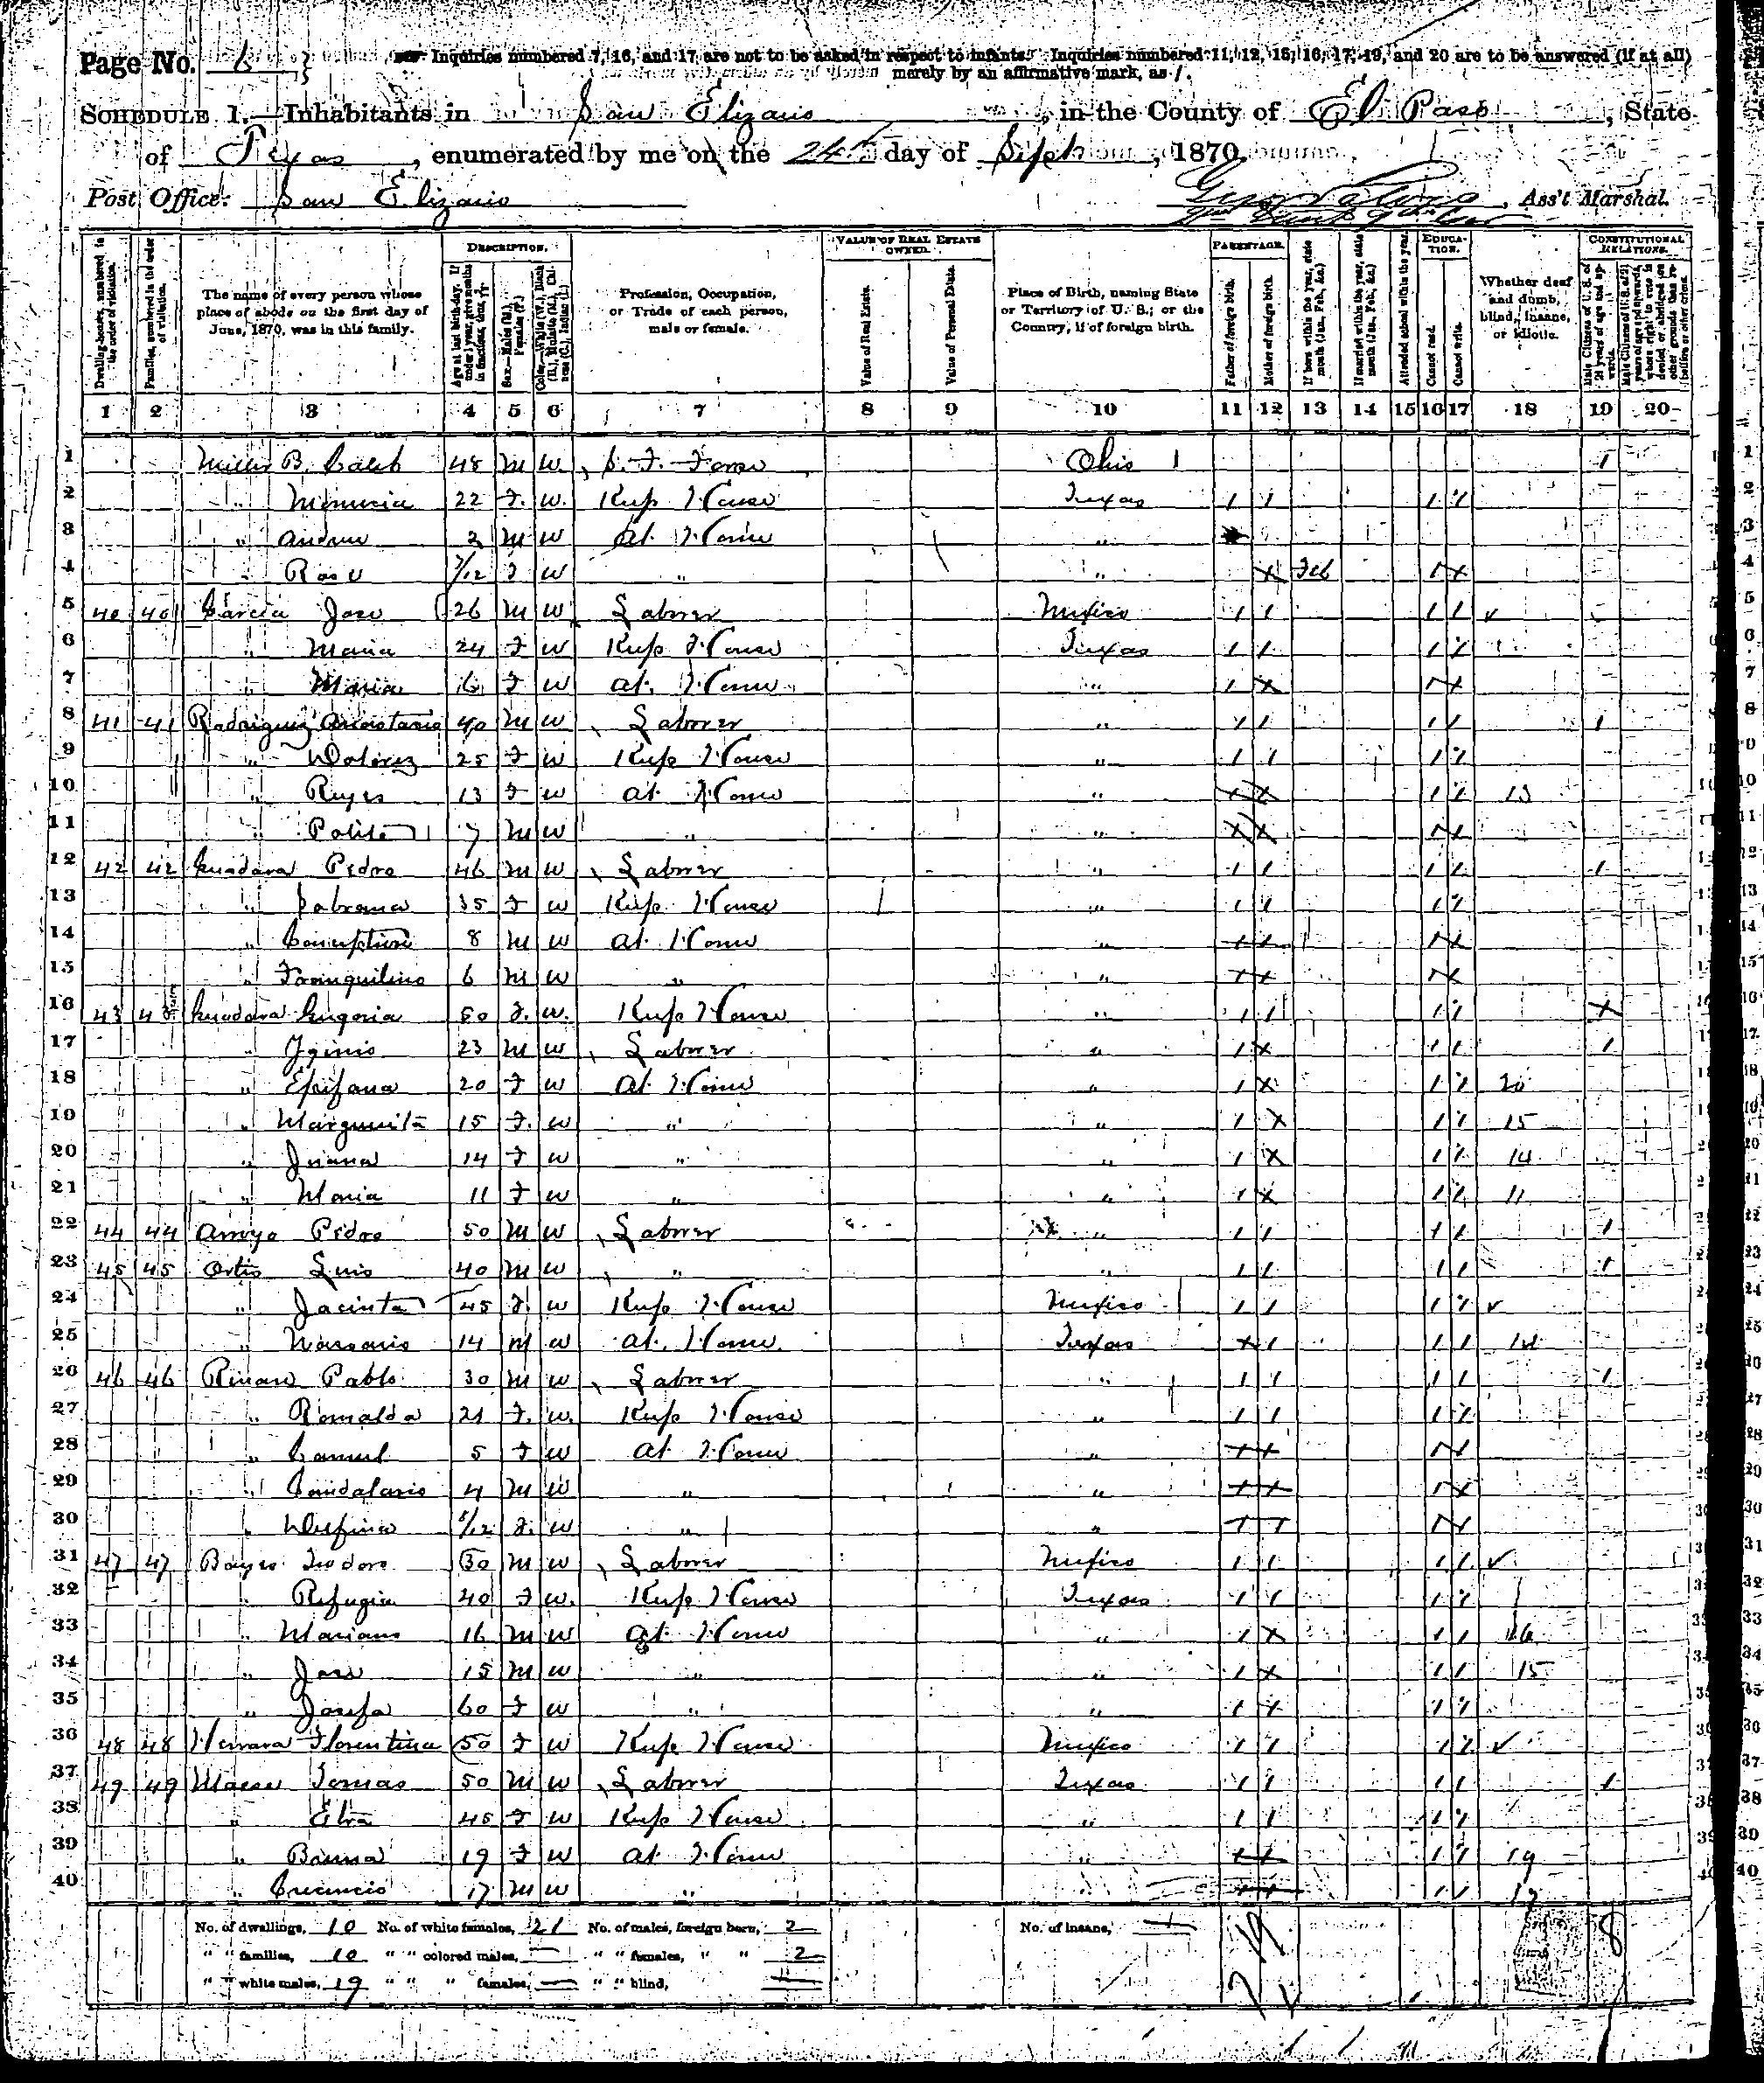 Page No. 6 } Inquiries numbered 7, 16, and 17 are not to be asked in respect to infants. Inquiries numbered 11, 12, 15, 16, 17, 19, and 20 are to be answered (if at all)
merely by an affirmative mark, as /.
SCHEDULE 1.—Inhabitants in San Elizario, in the County of El Paso, State
of Texas, enumerated by me on the 24th day of Sept, 1870.
Post Office: San Elizario
, Ass't Marshal.
DESCRIPTION. VALUE OF REAL ESTATE OWNED. PARENTAGE. EDUCATION. CONSTITUTIONAL RELATIONS.
Dwelling-houses, numbered in the order of visitation.
Families, numbered in the order of visitation.
The name of every person whose place of abode on the first day of June, 1870, was in this family.
Age at last birth-day. If under 1 year, give months in fractions, thus,
Sex.—Males (M.), Females (F.)
Color.—White (W.), Black (B.), Mulatto (M.), Chinese (C.), Indian (I.)
Profession, Occupation, or Trade of each person, male or female.
Value of Real Estate.
Value of Personal Estate.
Place of Birth, naming State or Territory of U. S.; or the Country, if of foreign birth.
Father of foreign birth.
Mother of foreign birth.
If born within the year, state month (Jan., Feb., &c.)
If married within the year, state month (Jan., Feb., &c.)
Attended school within the year.
Cannot read.
Cannot write.
Whether deaf and dumb, blind, insane, or idiotic.
Male Citizens of U. S. of 21 years of age and upwards.
Male Citizens of U. S. of 21 years of age and upwards, whose right to vote is denied or abridged on other grounds than rebellion or other crime.
1 2 3 4 5 6 7 8 9 10 11 12 13 14 15 16 17 18 19 20
1 Miller B. Caleb 48 M W Ohio / 1
2 " 22 F. W. Keep House Texas / / / / 2
3 " Andrew 2 M W At Home " 3
4 " Rosa 7/12 F W " " X Feb / X 4
5 40 40 Garcia Jose 26 M W Laborer Mexico / / / / ✓ 5
6 " Maria 24 F W Keep House Texas / / / / 6
7 " Maria 6 F W At Home " / X / X 7
8 41 41 Rodriguez Anastasio 40 M W Laborer " / / / / / 8
9 " Dolorez 25 F W Keep House " / / / / 9
10 " Reyes 13 F W At Home " X X / / 13 10
11 " 7 M W " " X X / X 11
12 42 42 Pedro 46 M W Laborer " / / / / / 12
13 " 35 F W Keep House " / / / / 13
14 " Conception 8 M W At Home " X X / X 14
15 " Tranquilino 6 M W " " X X / X 15
16 43 43 50 F. W. Keep House " / / / / X 16
17 " Yginio 23 M W Laborer " / X / / / 17
18 " Epifana 20 F W At Home " / X / / 20 18
19 " Marguerita 15 F. W " " / X / / 15 19
20 " Juana 14 F W " " / X / / 14 20
21 " Maria 11 F W " " / X / / 11 21
22 44 44 Arroyo Pedro 50 M W Laborer " / / / / / 22
23 45 45 Ortis Luis 40 M W " " / / / / / 23
24 " Jacinta 45 F. W Keep House Mexico / / / / ✓ 24
25 " 14 M W At Home Texas X / / / 14 25
26 46 46 Pablo 30 M W Laborer " / / / / / 26
27 " Romalda 21 F. W. Keep House " / / / / 27
28 " 5 F W At Home " X X / X 28
29 " Candalario 4 M W " " X X / X 29
30 " Delfina /12 F. W " " / X 30
31 47 47 Teodoro 30 M W Laborer Mexico / / / / ✓ 31
32 " Refugia 40 F W. Keep House Texas / / / / 32
33 " Mariano 16 M W At Home " / X / / 16 33
34 " Jose 15 M W " " / X / / 15 34
35 " Josefa 60 F W " " / / / / 35
36 48 48 Herrara Florentina 50 F W Keep House Mexico / / / / ✓ 36
37 49 49 Tomas 50 M W Laborer Texas / / / / / 37
38 " 45 F W Keep House " / / / / 38
39 " 19 F W At Home " X X / / 19 39
40 " Crecencio 17 M W " " X X / / 17 40
No. of dwellings, 10 No. of white females, 21 No. of males, foreign born, 2 No. of insane,
" " families, 10 " " colored males, — " " females, " " 2
" " white males, 19 " " " females, — " " blind,